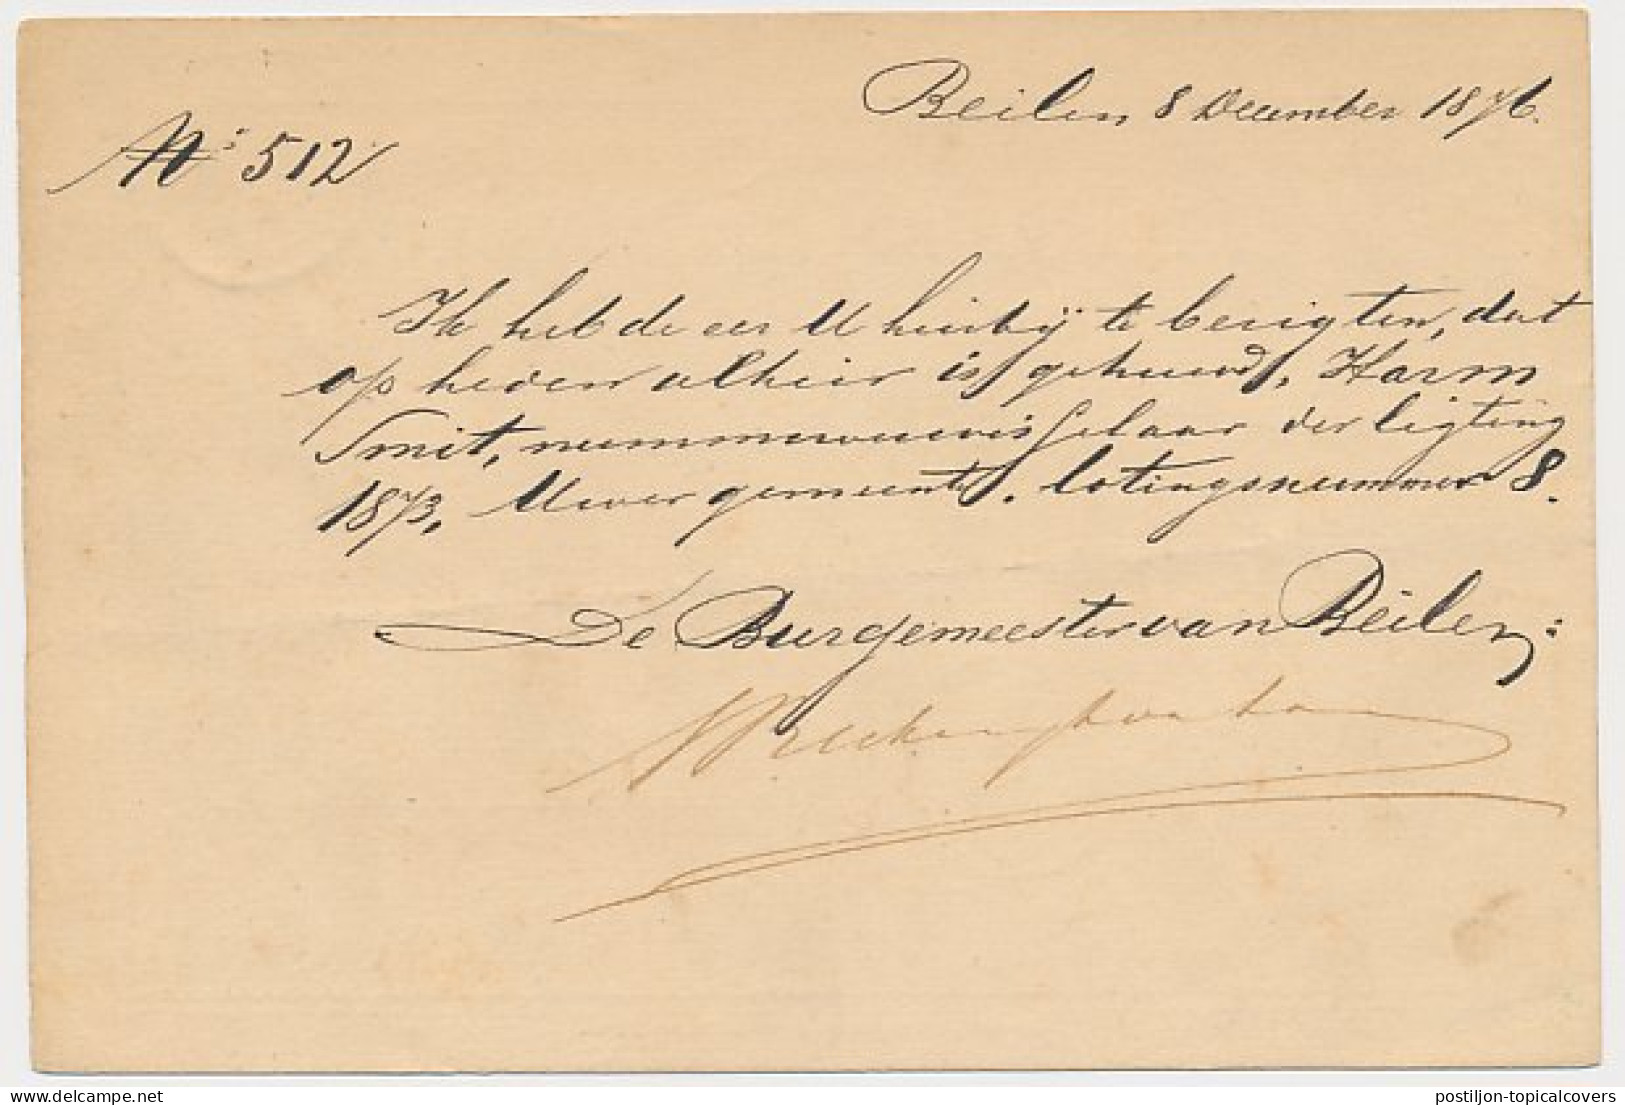 Beilen 8 December 1876.
No: 512
Ik heb de eer U hierbij te berigten, dat
op heden alhier is gehuwd, Harm
Smit, nummerverwisselaar der ligting
1873, Uwer gemeente, lotingsnummer 8.
De Burgemeester van Beilen:
postiljon-topicalcovers